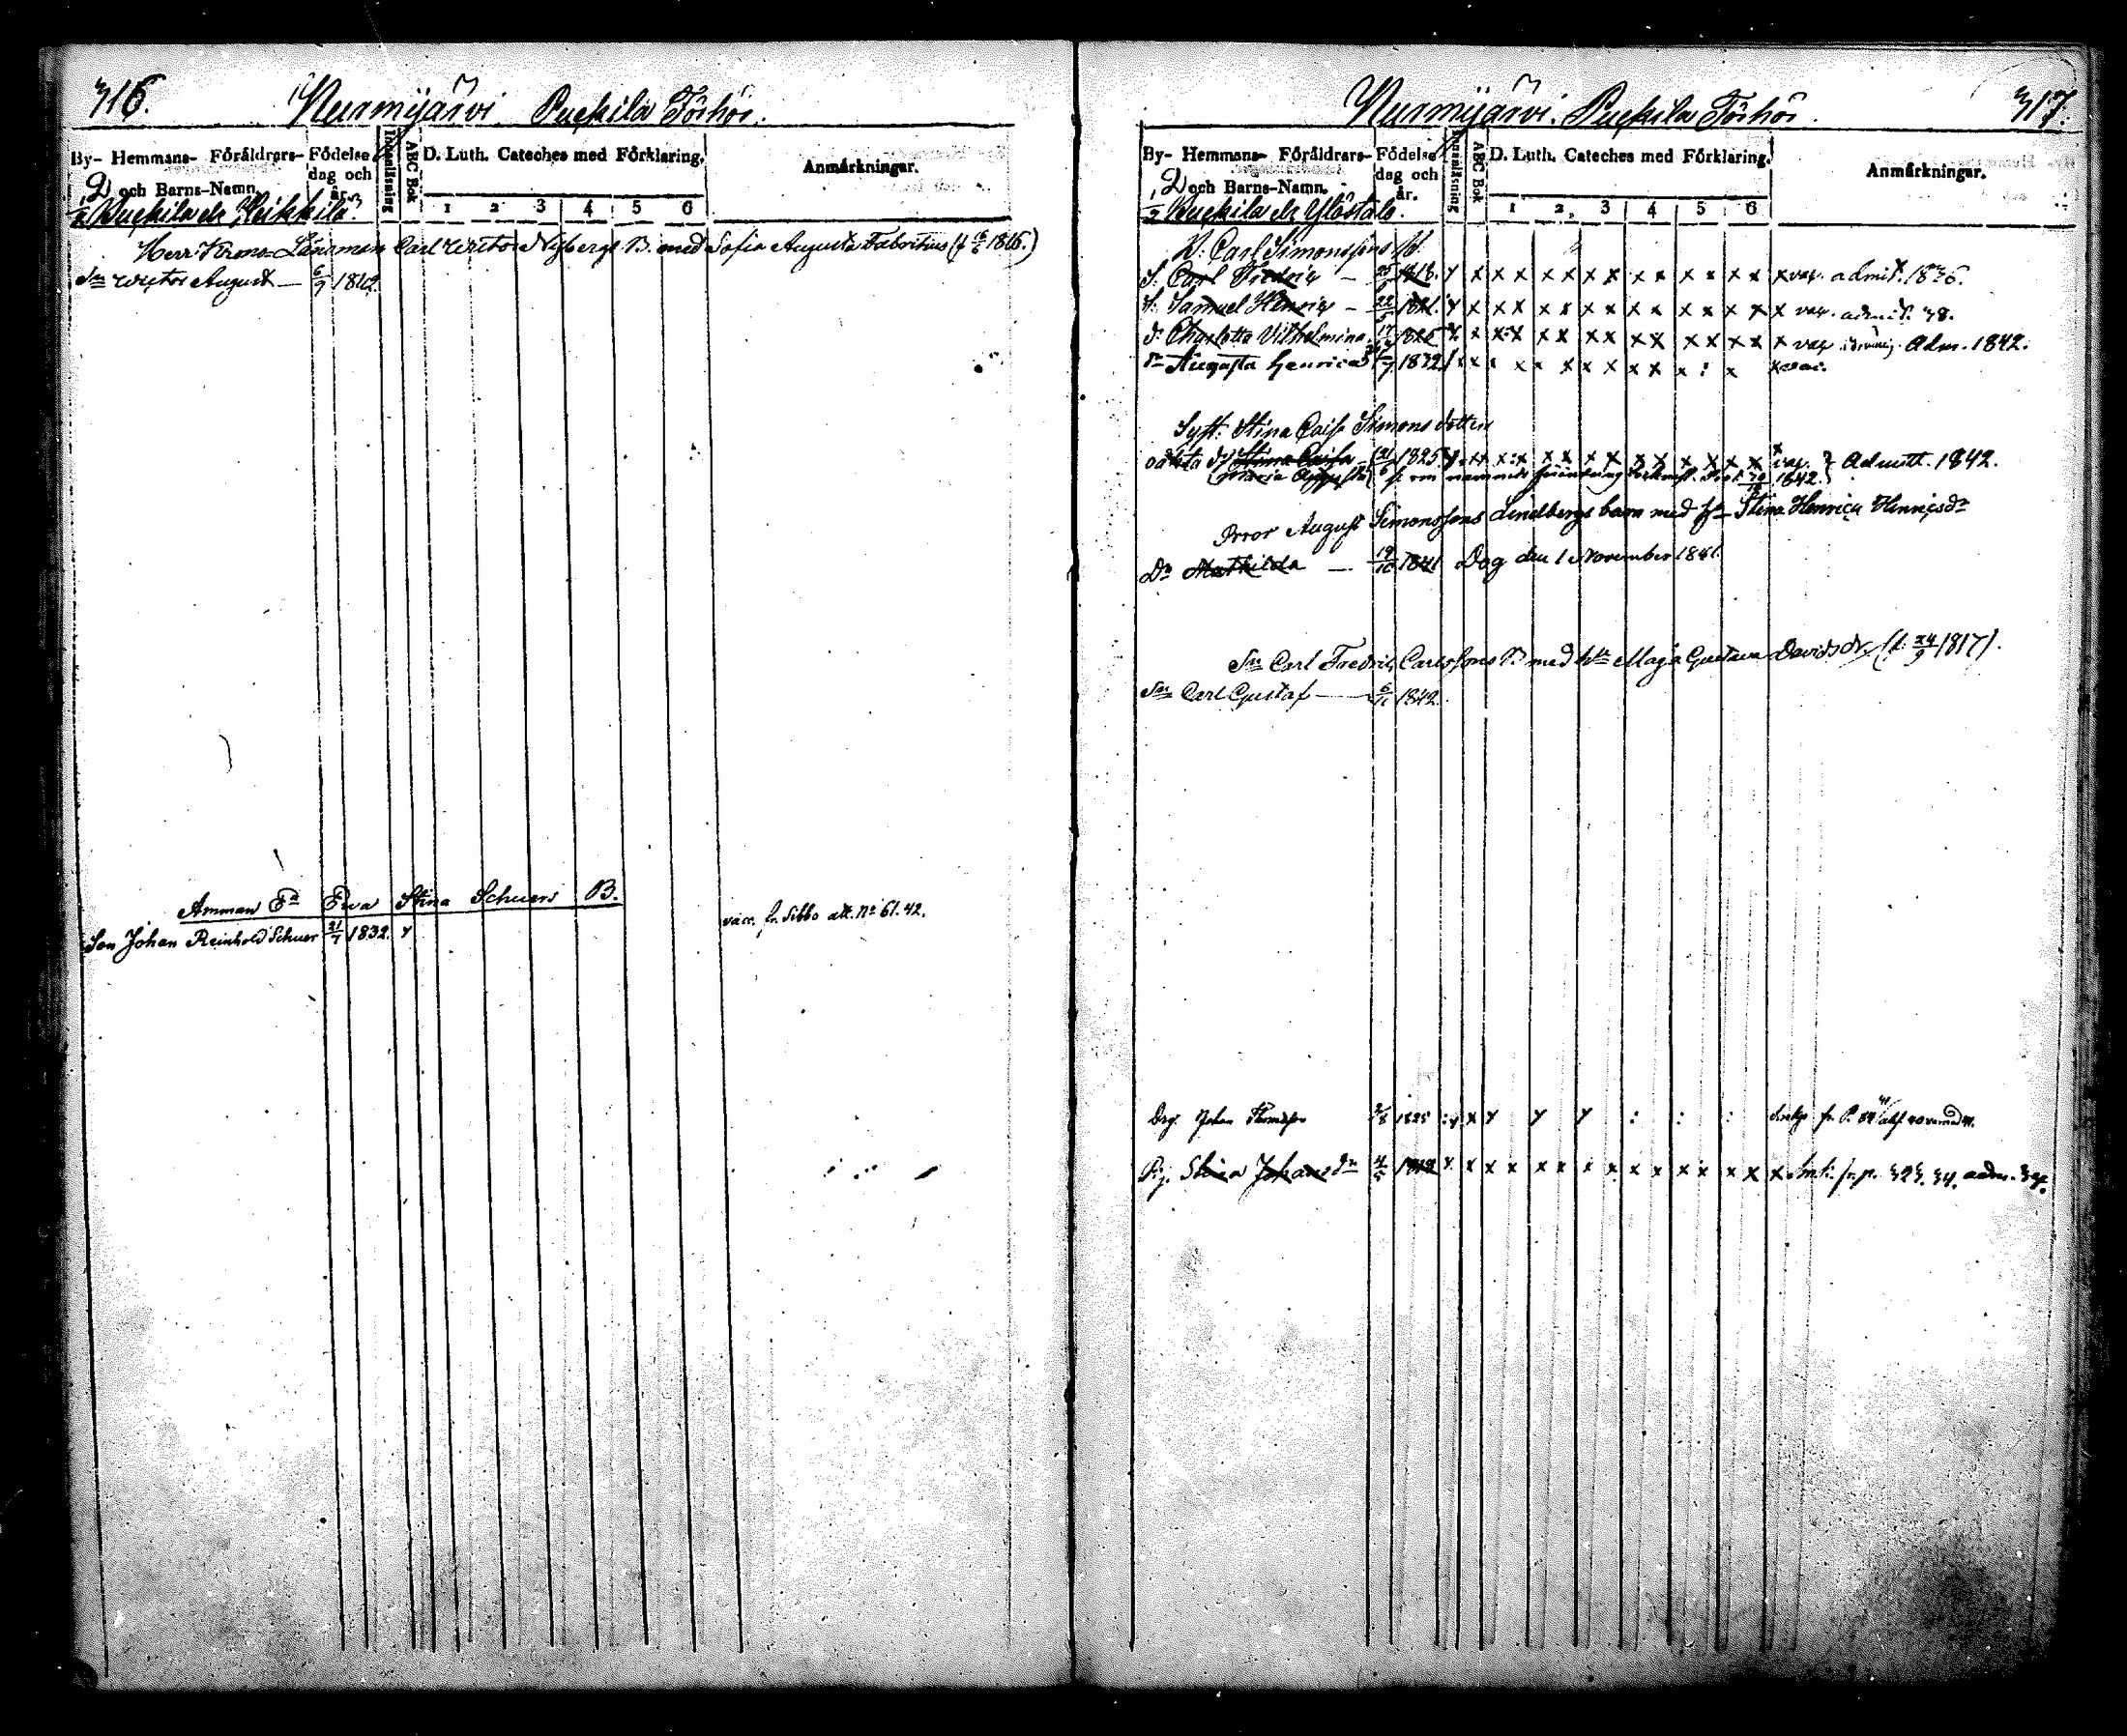 316. Nurmijärvi Puckila Förhör.
By- Hemmans- Föräldrars- och Barns-Namn.
Födelse dag och år.
Innanläsning
ABC Bok
D. Luth. Cateches med Förklaring.
1 2 3 4 5 6
Anmärkningar.
Puckila el. Heikkilä
Herr Krono-Länsman Carl Wictor Nybergs B. med Sofia Augusta Fabritius
Sn Wictor August — 6/9
Amman Ea Ewa Stina Schuers B.
Son Johan Reinhold Schuer 21/7 1832. y
vacc. fr. Sibbo att. No 61. 42.
Nurmijärvi. Puckila Förhör. 317.
By- Hemmans- Föräldrars- och Barns-Namn.
Födelse dag och år.
Innanläsning
ABC Bok
D. Luth. Cateches med Förklaring.
1 2 3 4 5 6
Anmärkningar.
1/2 Puckila el. Ylöstalo.
Carl Simonssons
S: Carl Fredric — 1818. y x x x x x x x x x x x x x vac. admit. 1836.
S: Samuel Henric — 22/5 1821. y x x x x x x x x x x x x x vac. admit. 38.
d: Charlotta Vilhelmina 1825 x x x x x x x x x x x x vac. Adm. 1842.
Augusta Henrica 1832 x x x x x x x x x x : x x vac.
Syst: Stina Caisa Simonsdotters
oäkta d: Stina Caisa 21/6 1825. x x x x x x x x x x x x vac. } Admitt. 1842.
Maria Augusta 1842.
August Simonssons Lindbergs barn med Stina Henrica Henricsdr
Dr Mathilda — 19/10 1841 Dog den 1 November 1841.
Sn Carl Fredric Carlssons B. med hu Maja Gustava Davidsdr (f. 24/9 1817).
Sn Carl Gustaf — 6/11 1842.
Drg. Johan Thomasson 1825 : y x y y y : : :
Pig. Stina Johansdr 1812 x x x x x x x x x x x x x x fr. p. 323. 34. adm. 34.